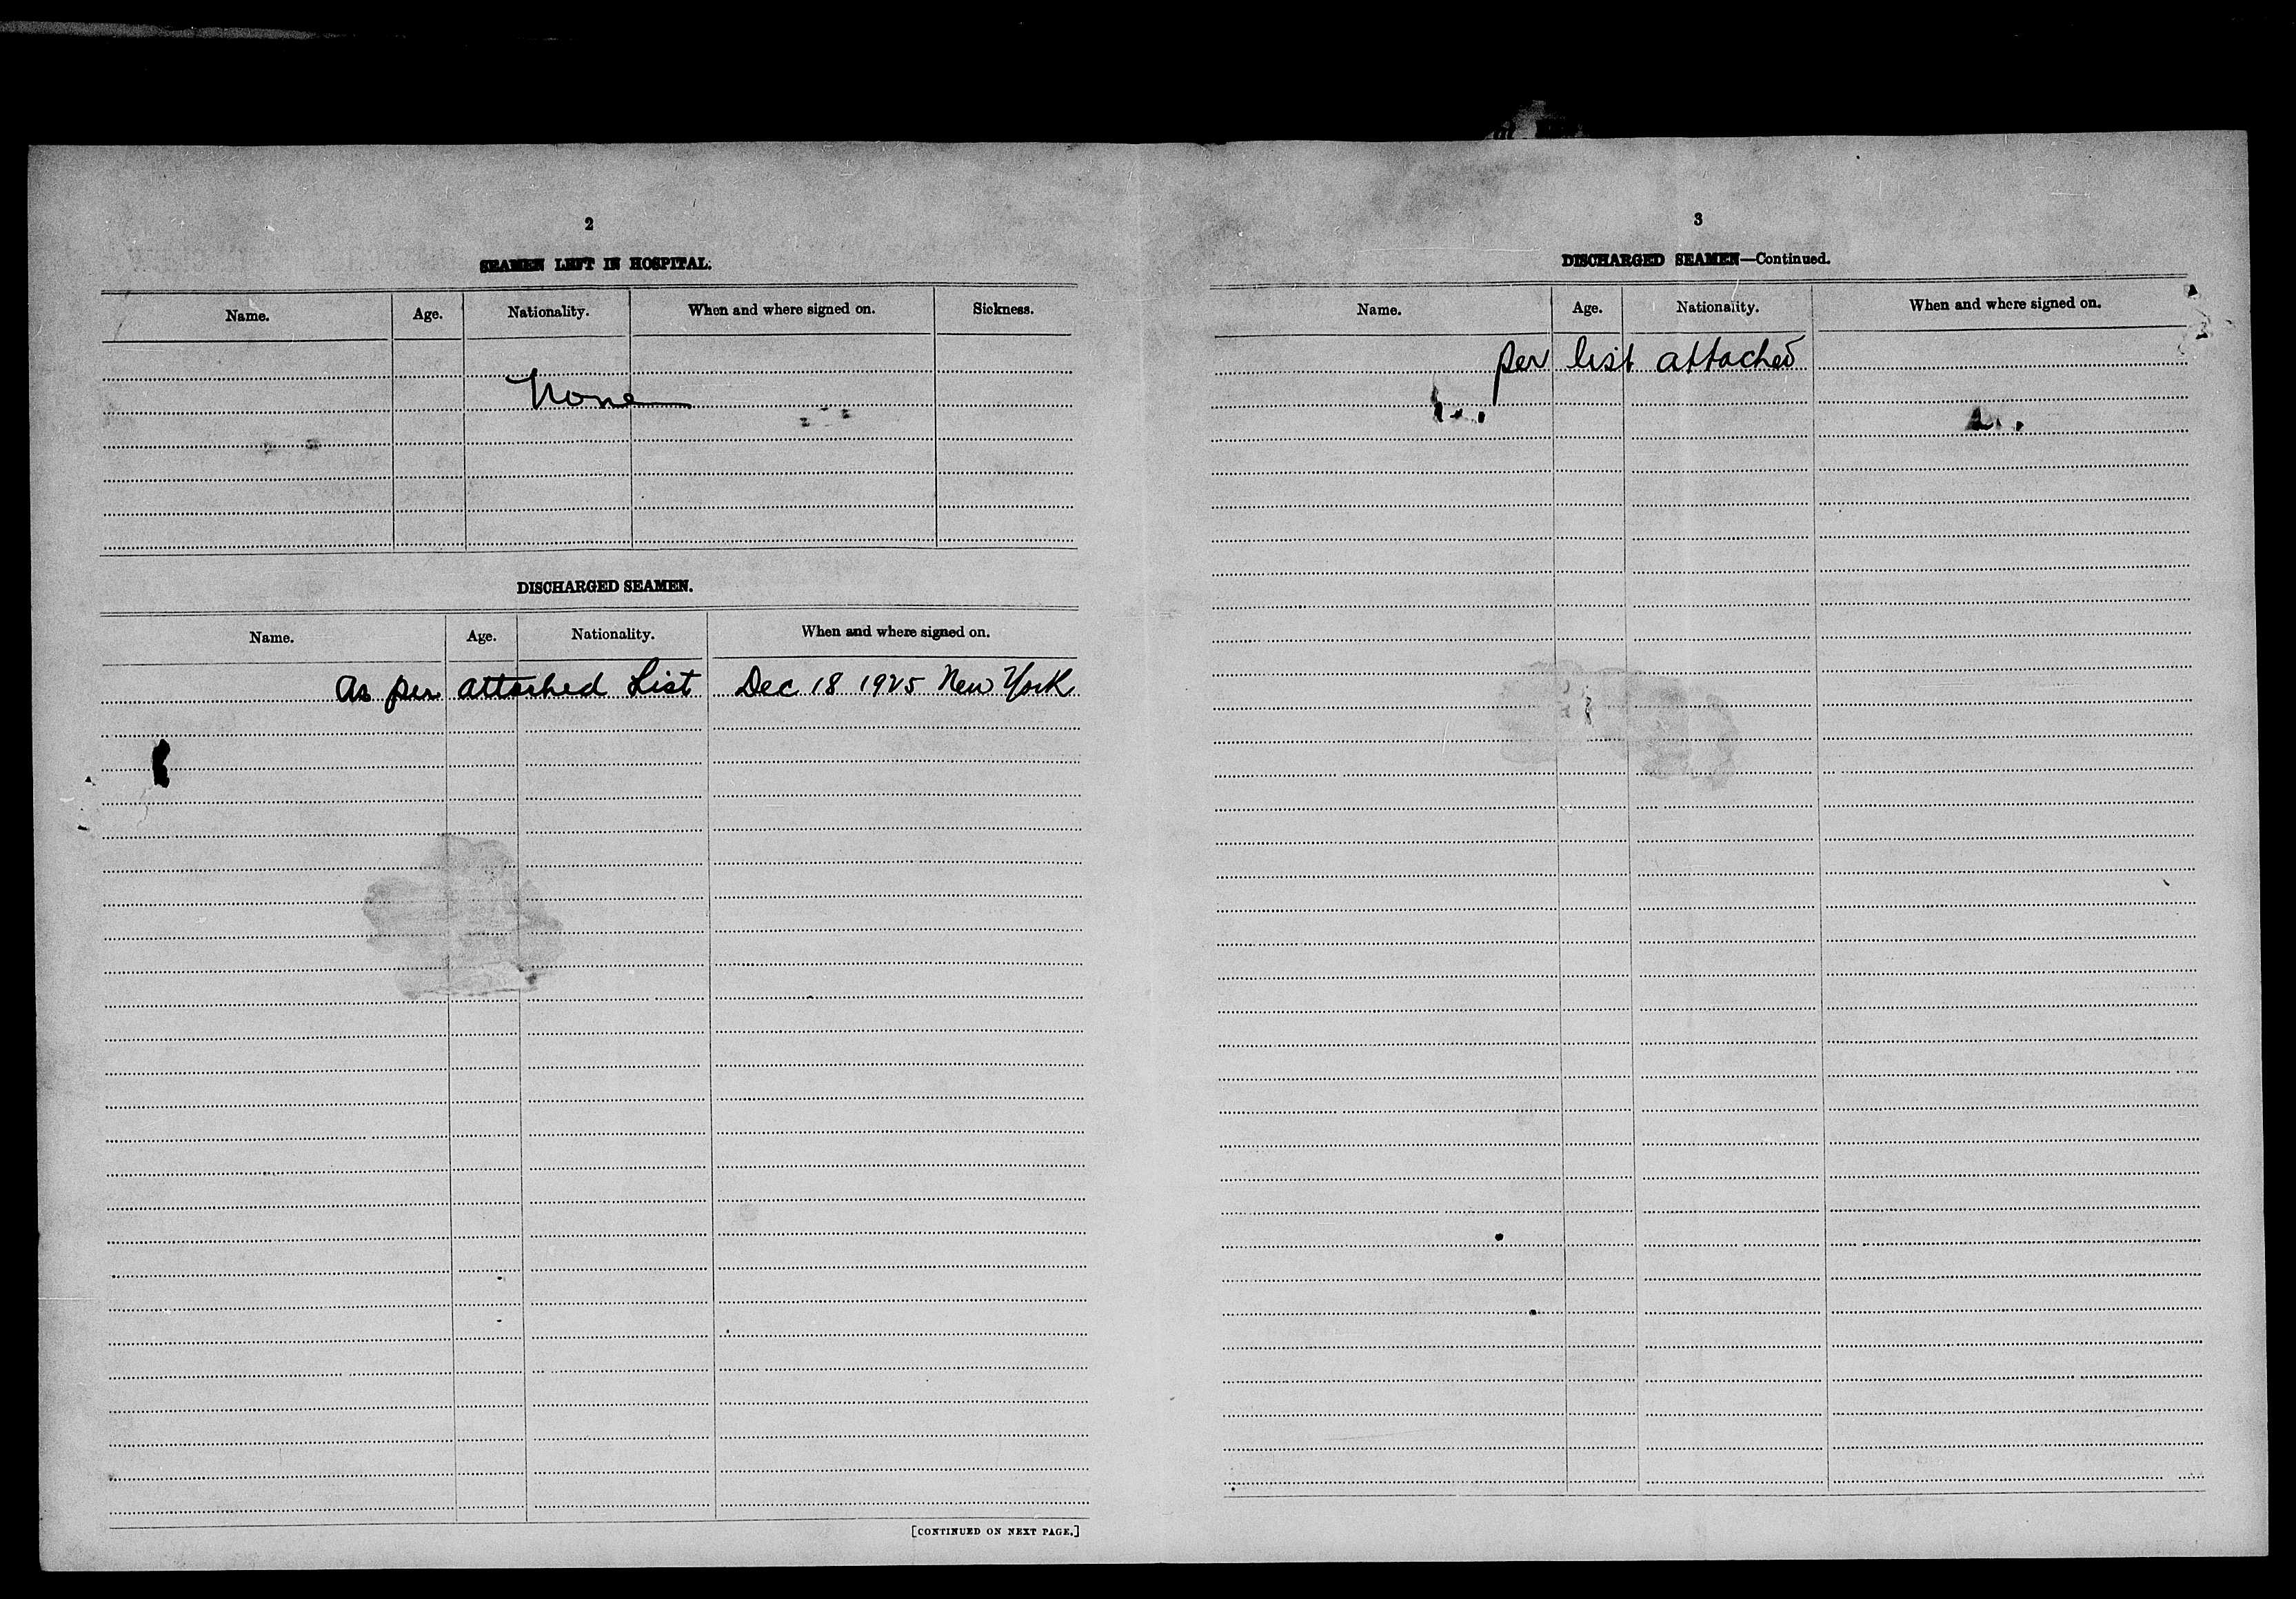 2
SEAMEN LEFT IN HOSPITAL.
Name. Age. Nationality. When and where signed on. Sickness.
None
DISCHARGED SEAMEN.
Name. Age. Nationality. When and where signed on.
As per attached List Dec 18 1925 New York
[CONTINUED ON NEXT PAGE.]
3
DISCHARGED SEAMEN—Continued.
Name. Age. Nationality. When and where signed on.
per list attached